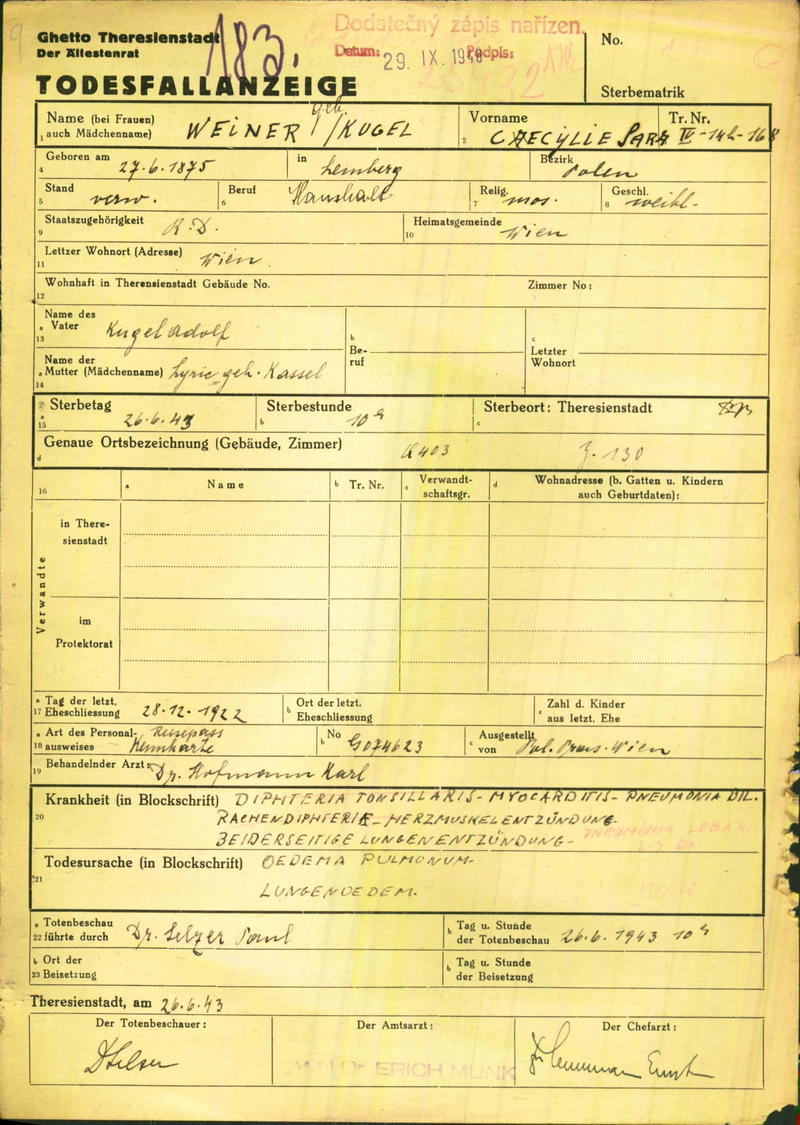 Ghetto Theresienstadt
Der Ältestenrat
183.
Dodatečný zápis nařízen.
Datum: 29. IX. 1948 Podpis:
No.
TODESFALLANZEIGE
Sterbematrik
Name (bei Frauen) auch Mädchenname) WEINER geb. /KUGEL
1
Vorname CAECYLIE SARA
2
Tr. Nr. IV-14h-168
Geboren am 27.6.1875
4
in Lemberg
Bezirk Polen
Stand verw.
5
Beruf Haushalt
6
Relig. mos.
7
Geschl. weibl.
8
Staatszugehörigkeit R.D.
9
Heimatsgemeinde Wien
10
Lettzer Wohnort (Adresse) Wien.
11
Wohnhaft in Therensienstadt Gebäude No.
12
Zimmer No:
Name des
a Vater Kugel Adolf
13
b
Be-
ruf
c
Letzter
Wohnort
Name der
a Mutter (Mädchenname) geb. Kassel
14
Sterbetag 26.6.43
a
15
Sterbestunde 10 h
b
Sterbeort: Theresienstadt
c
Genaue Ortsbezeichnung (Gebäude, Zimmer) 403 Z. 130
d
16
a Name
b Tr. Nr.
c Verwandt-
schaftsgr.
d Wohnadresse (b. Gatten u. Kindern
auch Geburtdaten):
Verwandte
in There-
sienstadt
im
Protektorat
a Tag der letzt.
17 Eheschliessung 28.12.1922
b Ort der letzt.
Eheschliessung
c Zahl d. Kinder
aus letzt. Ehe
a Art des Personal-
18 ausweises Reisepass
Kennkarte
b No G074623
c Ausgestellt
von Pol. Präs. Wien
Behandelnder Arzt: Dr. Hofmann Karl
19
Krankheit (in Blockschrift) DIPHTERIA TONSILLARIS - MYOCARDITIS - PNEUMONIA BIL.
20 RACHENDIPHTERIE - HERZMUSKELENTZÜNDUNG -
BEIDERSEITIGE LUNGENENTZÜNDUNG -
PNEUMONIA LOBARIS
Todesursache (in Blockschrift) OEDEMA PULMONUM -
21
LUNGENOEDEM.
a Totenbeschau
22 führte durch Dr. Selzer Paul
b Tag u. Stunde
der Totenbeschau 26.6.1943 10 h
b Ort der
23 Beisetzung
b Tag u. Stunde
der Beisetzung
Theresienstadt, am 26.6.43
Der Totenbeschauer:
Der Amtsarzt:
Der Chefarzt:
MUDr ERICH MUNK